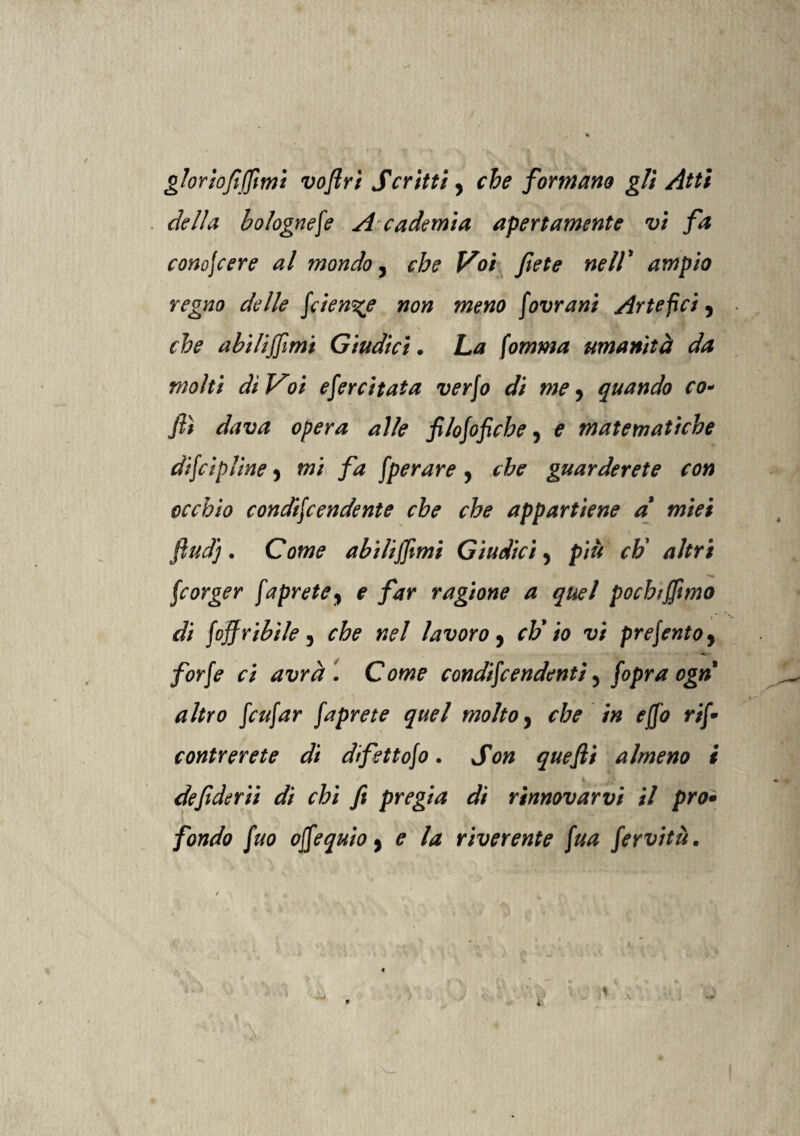 glorioſiſſimi voſtri Scritti, che formano gli Atti
della bologneſe Accademia apertamente vi fa
conoſcere al mondo, che Voi ſiete nell' ampio
regno delle ſcienze non meno ſovrani Artefici,
che abiliſſimi Giudici. La ſomma umanità da
molti di Voi eſercitata verſo di me, quando co-
ſtì dava opera alle filoſofiche, e matematiche
diſcipline, mi fa ſperare, che guarderete con
occhio condiſcendente che che appartiene a' miei
ſtudj. Come abiliſſimi Giudici, più ch' altri
ſcorger ſaprete, e far ragione a quel pochiſſimo
di ſoffribile, che nel lavoro, ch' io vi preſento,
forſe ci avrà. Come condiſcendenti, ſopra ogn'
altro ſcuſar ſaprete quel molto, che in eſſo riſ-
contrerete di difettoſo. Son queſti almeno i
deſiderii di chi ſi pregia di rinnovarvi il pro-
fondo ſuo oſſequio, e la riverente ſua ſervitù.